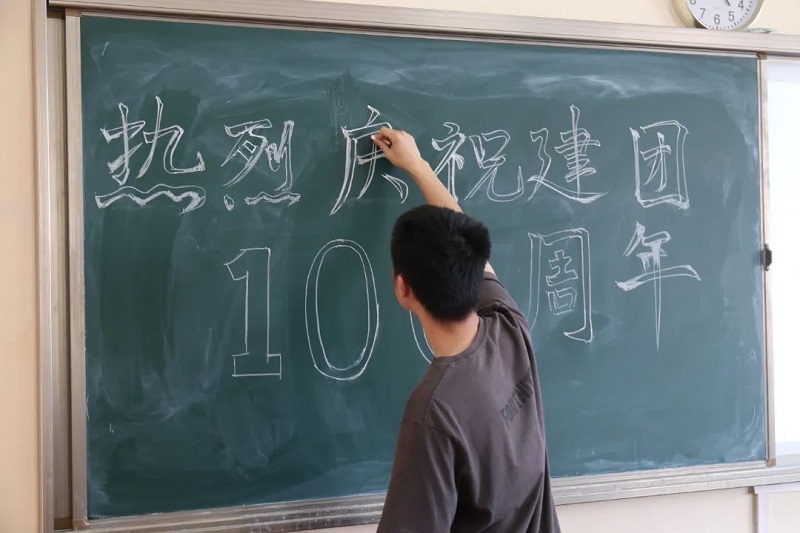 热烈庆祝建团
100周年